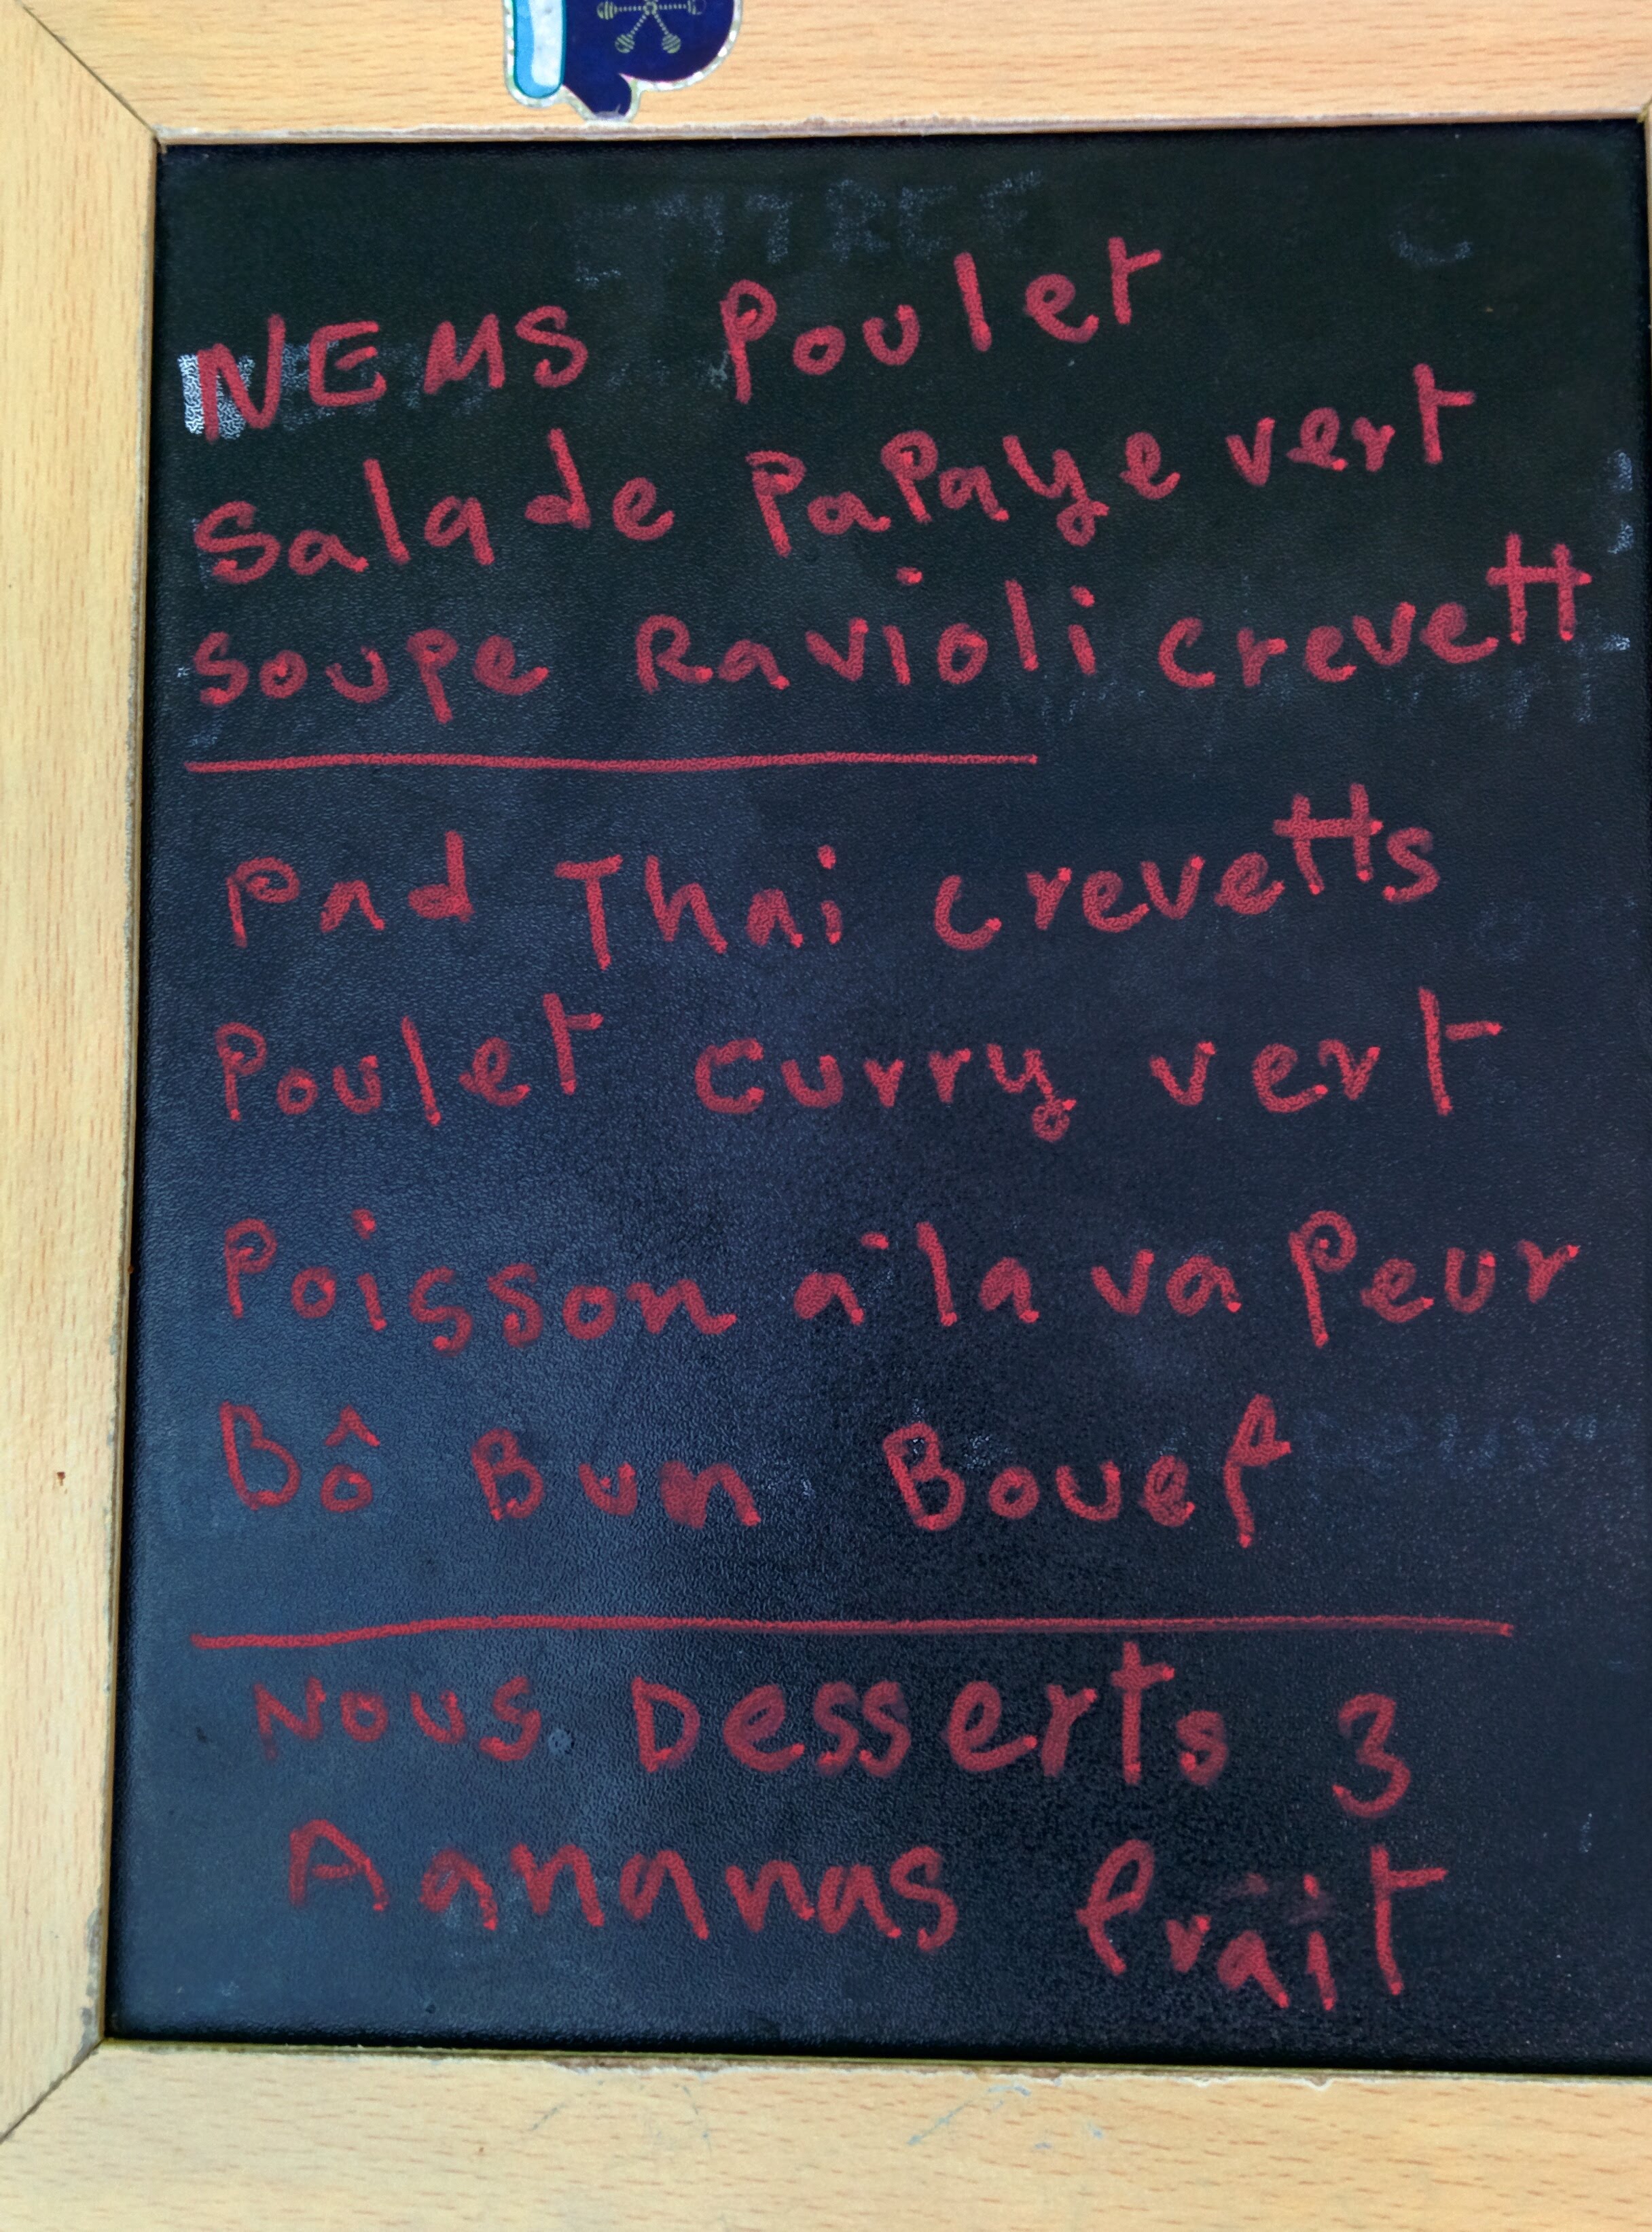 ENTREE
NEMS Poulet
Salade Papaye vert
Soupe Ravioli crevett
Pad Thai crevetts
Poulet curry vert
Poisson a la vapeur
Bô Bun Bouef
Nous Desserts 3
Aananas frait